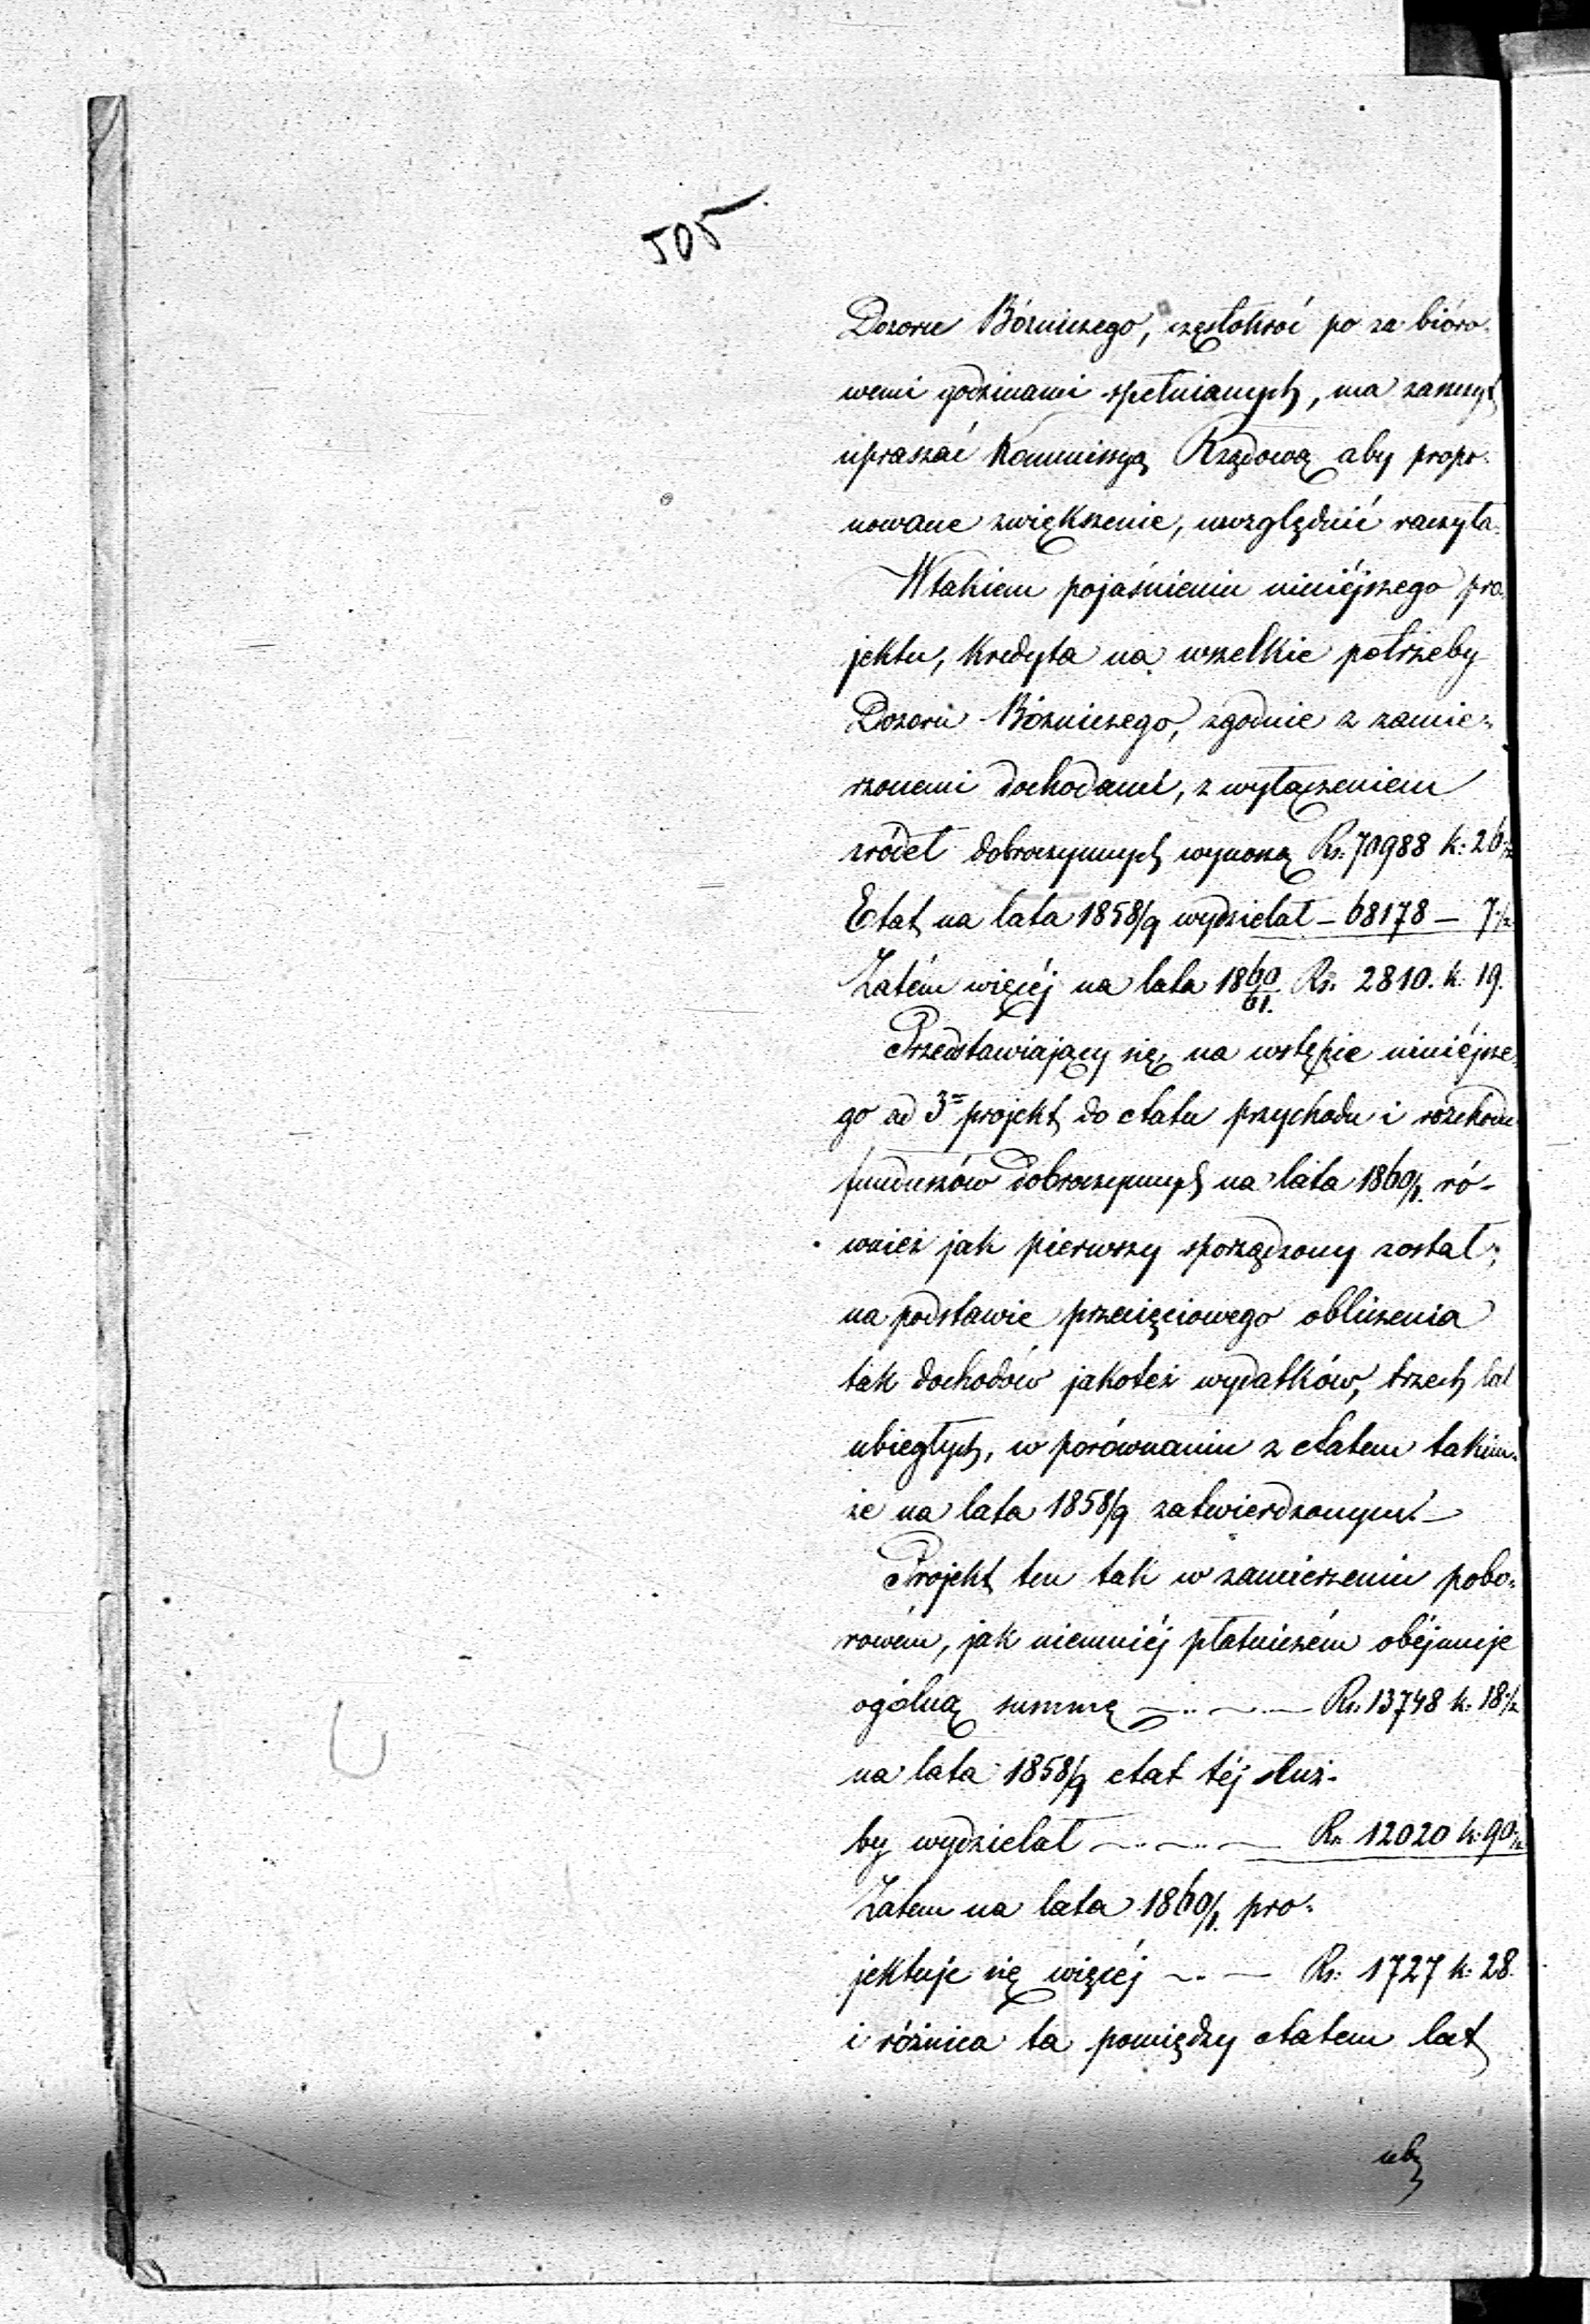 505
Dozoru Bóżniczego, częstokroć po za bióro-
wemi godzinami spełnianych, ma zaszczyt
upraszać Kommissyą Rządową aby propo-
nowane zwiększenie, uwzględnić raczyła.
W takiem pojaśnieniu niniéjszego pro-
jektu, kredyta na wszelkie potrzeby
Dozoru Bóżniczego, zgodnie z zamie-
rzonemi dochodami, z wyłączeniem
źródeł dobroczynnych wynoszą Rs: 70988 k: 26½
Etat na lata 1858/9 wydzielał – 68178 – 7½
Zatém więcéj na lata 1860/61. Rs. 2810. k: 19.
Przedstawiający się na wstępie niniéjsze-
go ad 3= projekt do etatu przychodu i rozchodu
funduszów dobroczynnych na lata 1860/1. ró-
wnież jak pierwszy sporządzony został,
na podstawie przecięciowego obliczenia
tak dochodów jakoteż wydatków, trzech lat
ubiegłych, w porównaniu z etatem takim-
że na lata 1858/9 zatwierdzonym. –
Projekt ten tak w zamierzeniu pobo-
rowém, jak niemniéj płatniczém obéjmuje
ogólną summę — Rs. 13748 k: 18½
na lata 1858/9 etat téj służ-
by wydzielał — Rs. 12020 k: 90½
Zatem na lata 1860/1. pro-
jektuje się więcéj — Rs: 1727 k: 28.
i różnica ta pomiędzy etatem lat